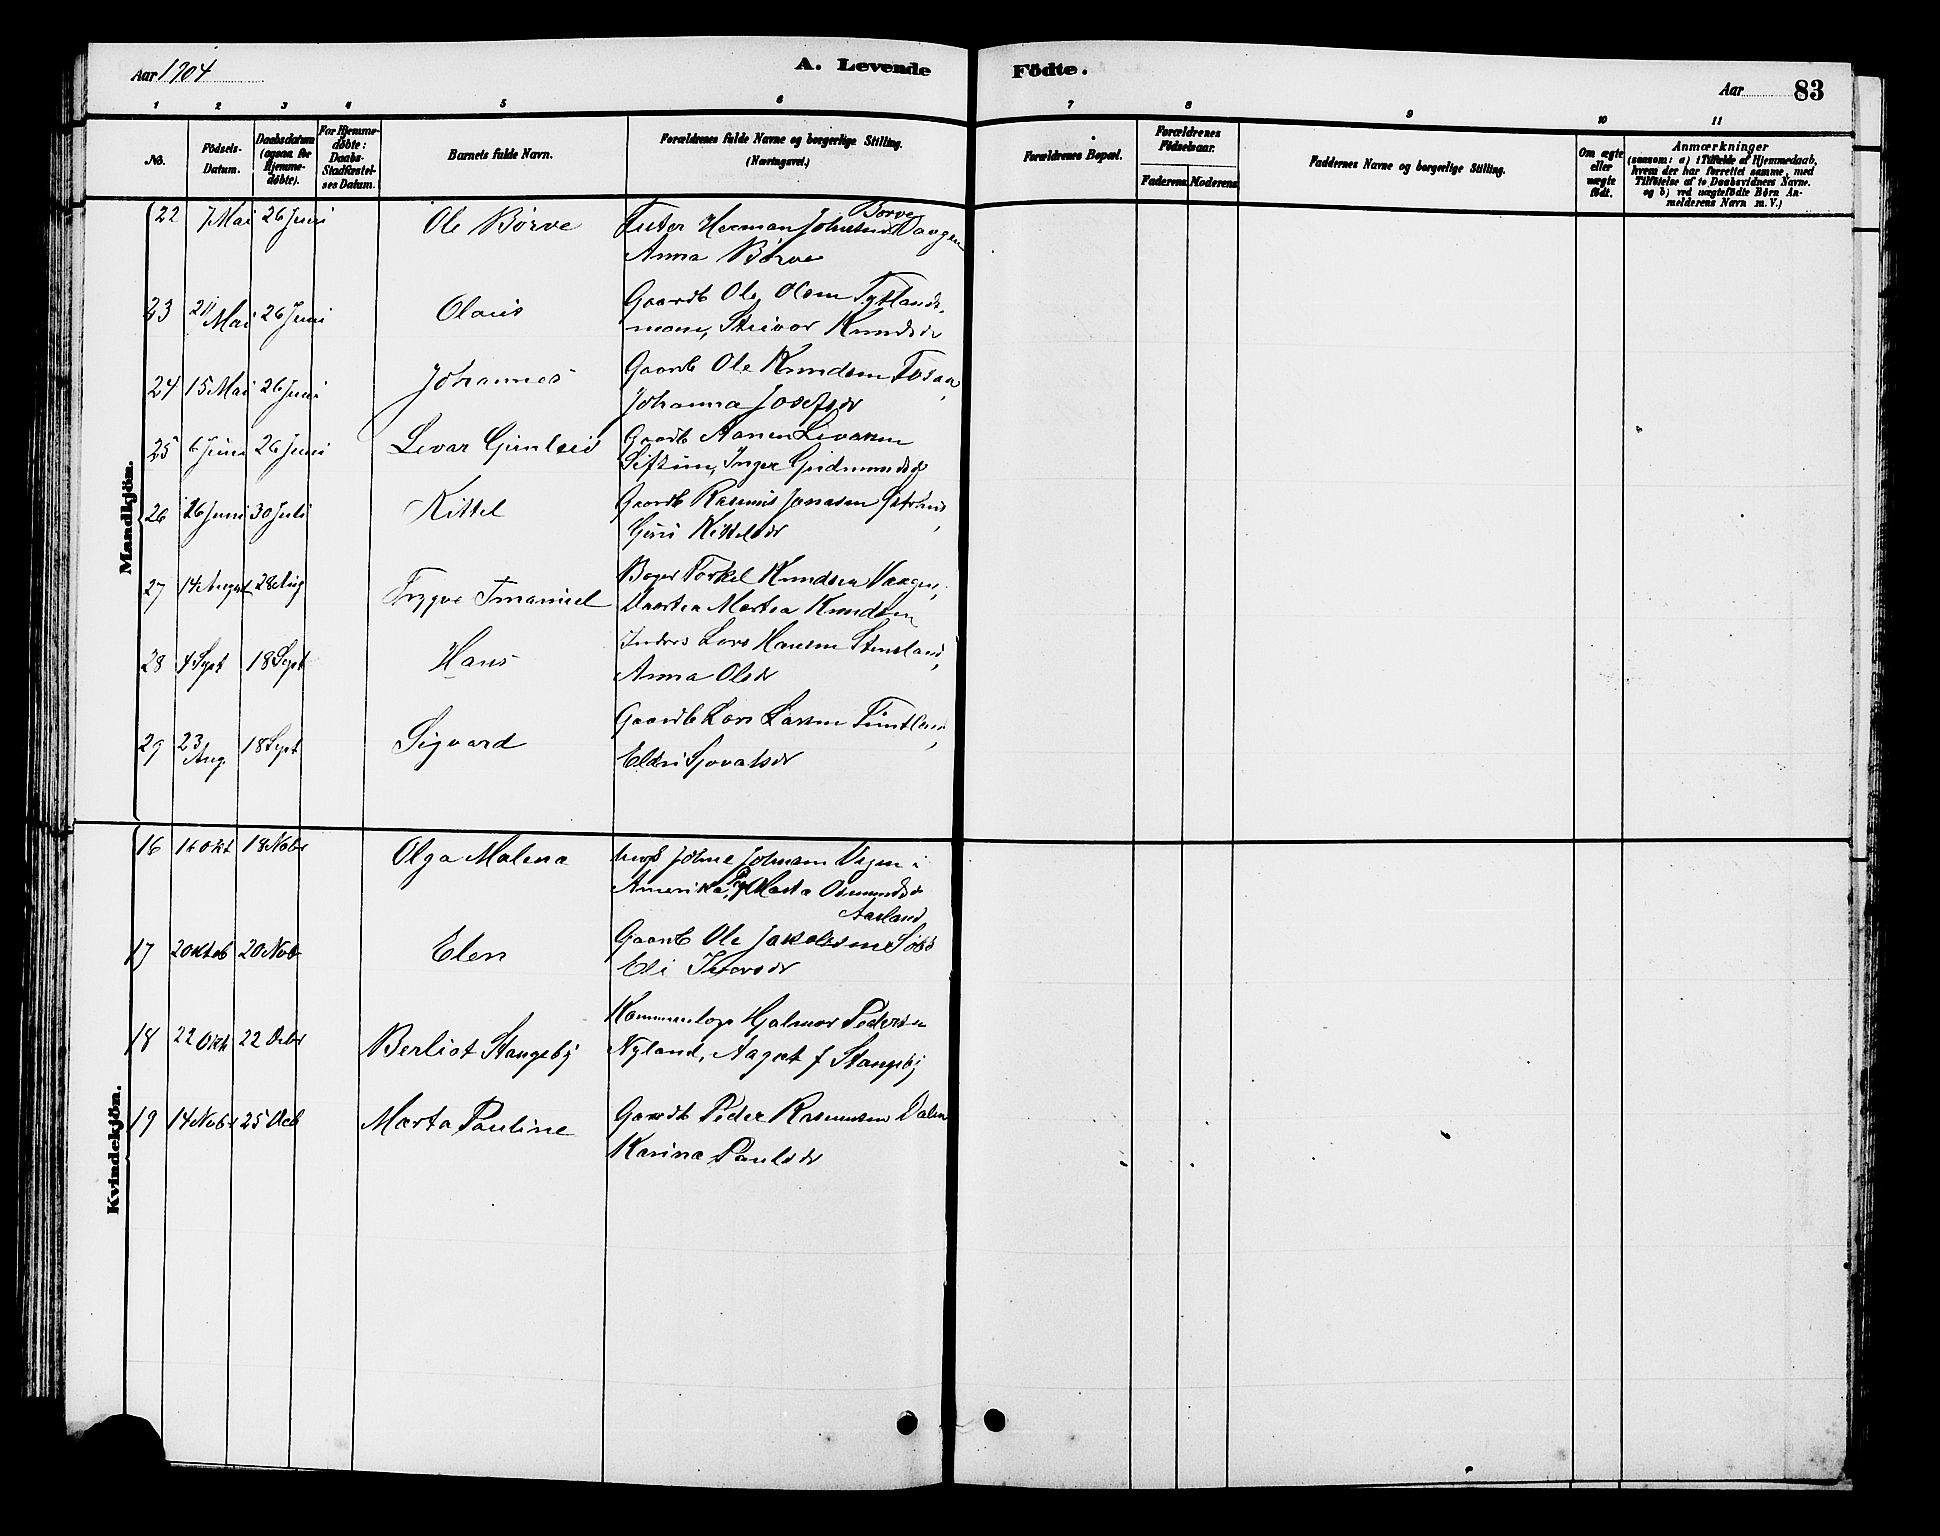 Aar 1904
A. Levende Födte.
Aar 83
1 2 3 4 5 6 7 8 9 10 11
No.
Födsels-Datum.
Daabsdatum (ogsaa for Hjemme-döbte).
For Hjemme-döbte: Daabs-Stadfæstel-ses Datum.
Barnets fulde Navn.
Forældrenes fulde Navne og borgerlige Stilling. (Næringsvei.)
Forældrenes Bopæl.
Forældrenes Födselsaar.
Faderens. Moderens.
Faddernes Navne og borgerlige Stilling.
Om ægte eller uægte födt.
Anmærkninger
(saasom: a) i Tilfælde af Hjemmedaab,
hvem der har forrettet samme, med
Tilföielse af to Daabsvidners Navne.
og b) ved uægtefödte Börn An-
melderens Navn m. V.)
Mandkjön.
22 7 Mai 26 Juni Ole Börve Herman Johnsen Vaagen Börve
Anna Börve
23 21 Mai 26 Juni Olaus Gaardb Ole Olsen
Knudsdr
24 15 Mai 26 Juni Johannes Gaardb Ole Knudsen Fosaa,
Johanna Josefsdr
25 6 Juni 26 Juni Levar Gunleid Gaardb Aanen Levarsen
Inger Gudmundsdr
26 26 Juni 30 Juli Kittel Gaardb Rasmus Jonasen
Guri Kittelsdr
27 14 August 28 Aug Trygve Imanuel Bager Torkel Knudsen Vaagen,
Martea Knudsen
28 4 Sept 18 Sept Hans Lars Hansen Stensland,
Anna Olsdr
29 23 Aug 18 Sept Sigvard Gaardb Lars Larsen
Eldri Sjovatsdr
Kvindekjön.
16 16 Okt 18 Nobr Olga Malena Johnsen i
Amerika, Pg Marta Osmundsdr
Aarland
17 2 Oktob 20 Nob Elen Gaardb Ole Jakobsen
Eli Iversdr
18 22 Okt 22 Debr Berliot Stangeby Hjalmar Pedersen
Nyland, Aagot f Stangeby
19 14 Nobr 25 Deb Marta Pauline Gaardb Peder Rasmussen Dalen
Karina Paulsdr